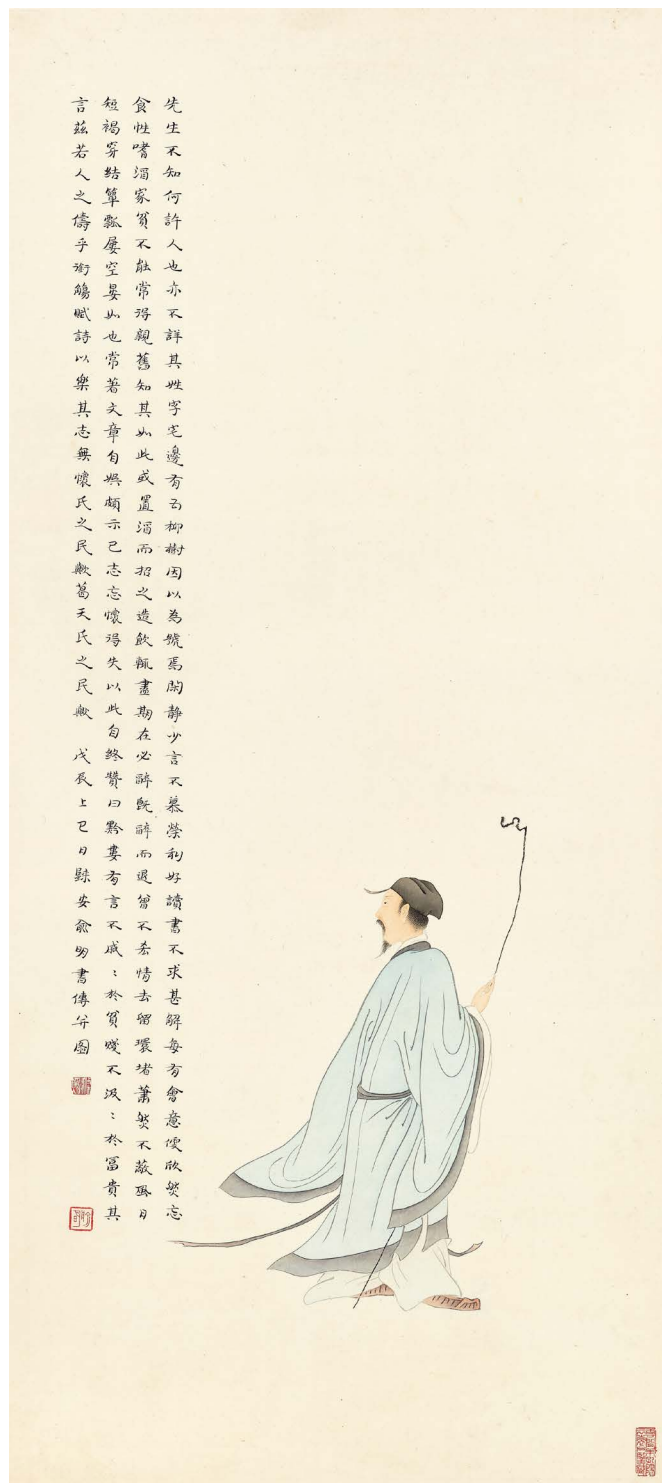 先生不知何許人也亦不詳其姓字宅邊有五柳樹因以為號焉閑靜少言不慕榮利好讀書不求甚解每有會意便欣然忘
食性嗜酒家貧不能常得親舊知其如此或置酒而招之造飲輒盡期在必醉既醉而退曾不吝情去留環堵蕭然不蔽風日
短褐穿結簞瓢屢空晏如也常著文章自娛頗示己志忘懷得失以此自終贊曰黔婁有言不戚〻於貧賤不汲〻於富貴其
言茲若人之儔乎銜觴賦詩以樂其志無懷氏之民歟葛天氏之民歟 戊辰上巳日歸安俞明書傳并圖